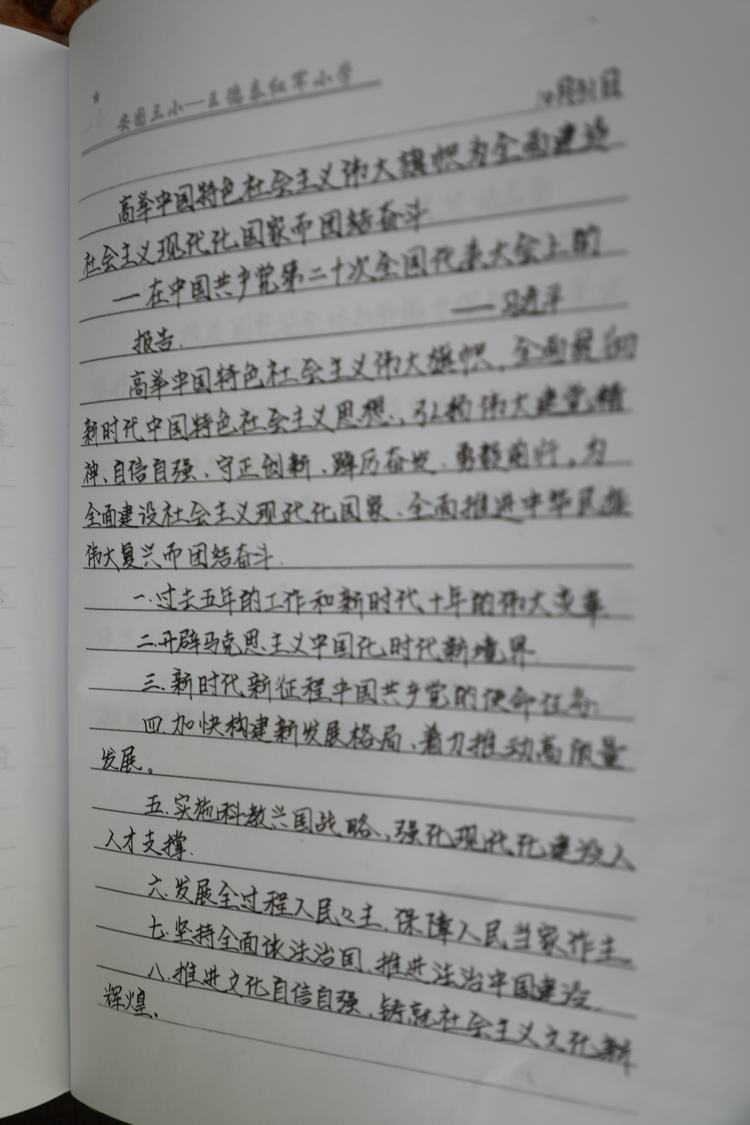 安图三小—王德泰红军小学
10月31日
高举中国特色社会主义伟大旗帜为全面建设
社会主义现代化国家而团结奋斗
一在中国共产党第二十次全国代表大会上的
报告. ——习近平
高举中国特色社会主义伟大旗帜,全面贯彻
新时代中国特色社会主义思想,弘扬伟大建党精
神、自信自强、守正创新、踔厉奋发、勇毅前行。为
全面建设社会主义现代化国家、全面推进中华民族
伟大复兴而团结奋斗.
一.过去五年的工作和新时代十年的伟大变革
二.开辟马克思主义中国化时代新境界
三.新时代新征程中国共产党的使命任务
四.加快构建新发展格局、着力推动高质量
发展。
五.实施科教兴国战略,强化现代化建设人
人才支撑.
六.发展全过程人民々主.保障人民当家作主.
七.坚持全面依法治国.推进法治中国建设.
八.推进文化自信自强.铸就社会主义文化新
辉煌.